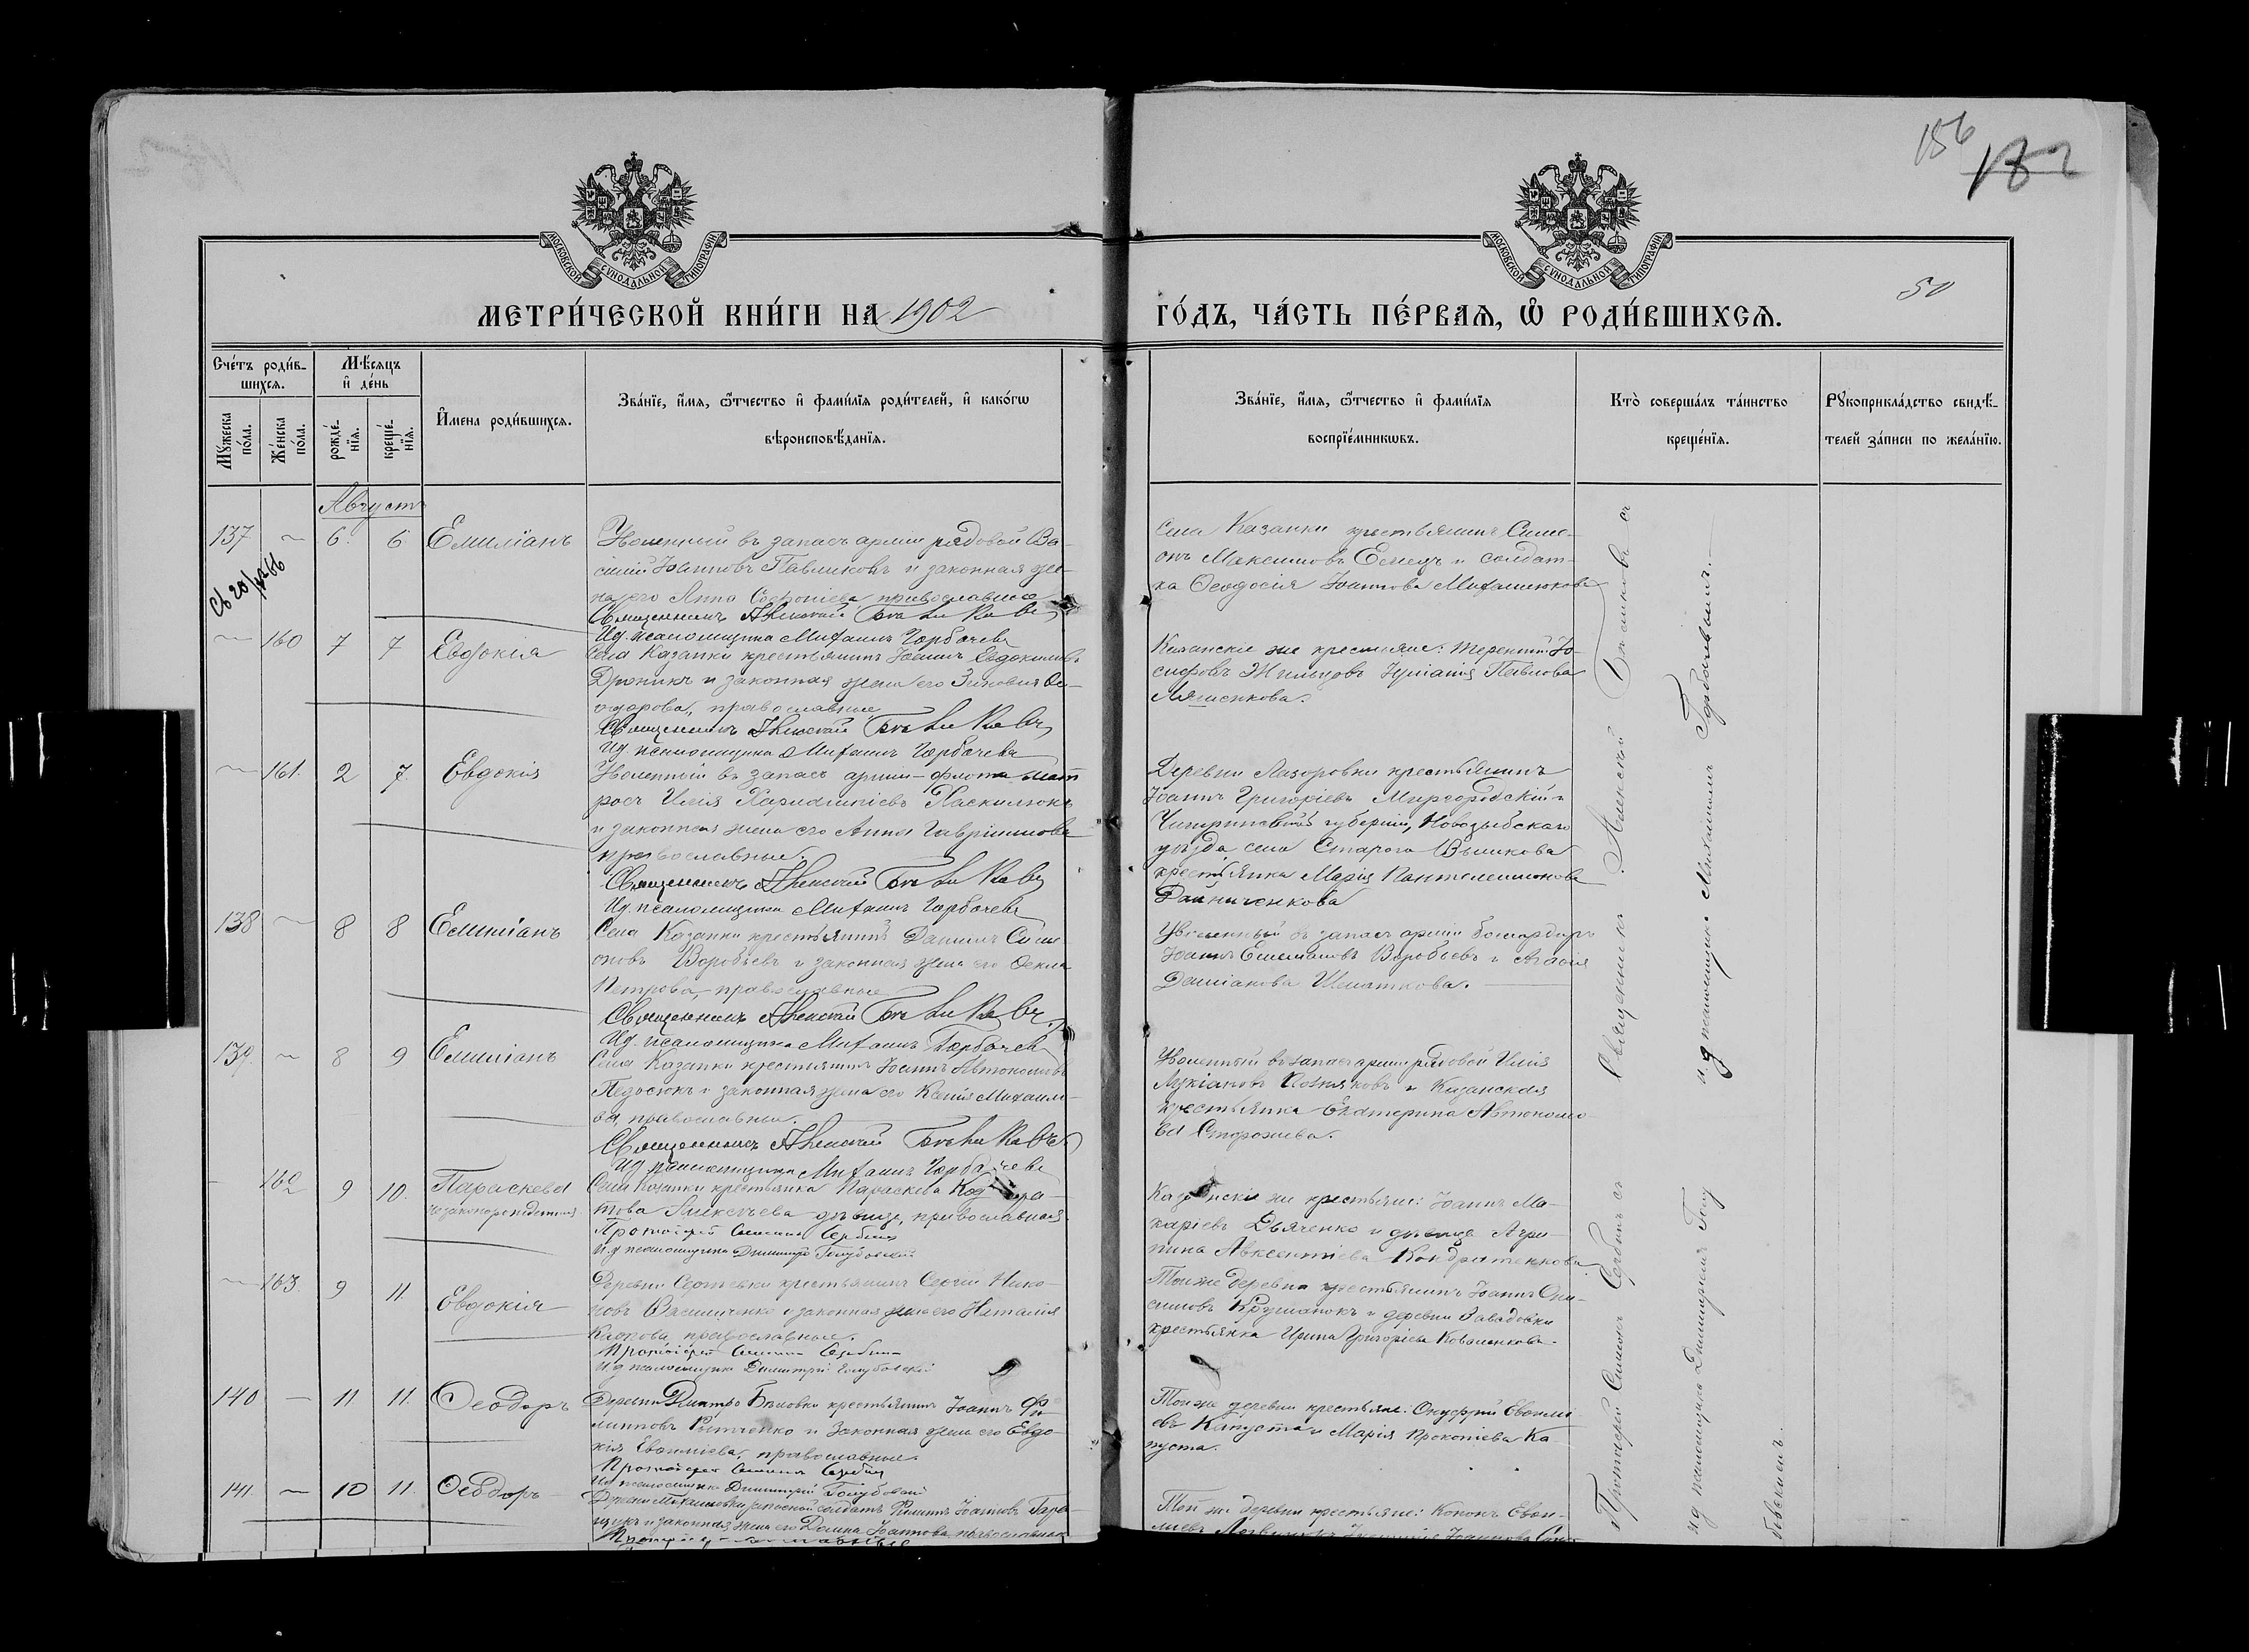 156
182
50
МОСКОВСКОЙ СѴНОДАЛЬНОЙ ТИПОГРАФІИ
МОСКОВСКОЙ СѴНОДАЛЬНОЙ ТИПОГРАФІИ
МЕТРИ́ЧЕСКОЙ КНИ́ГИ НА 1902
ГО́ДЪ, ЧА́СТЬ ПЕ́РВАѦ, Ѡ҆ РОДИ́ВШИХСѦ.
Сче́тъ роди́в-
шихсѧ.
Мꙋ́жеска по́ла.
Же́нска по́ла.
Мѣ́сѧцъ
и҆ де́нь
рожде́-
нїѧ.
креще́-
нїѧ.
И҆́мена роди́вшихсѧ.
Зва́нїе, и҆́мѧ, ѻ҆́тчество и҆ фами́лїѧ роди́телей, и҆ како́гѡ
вѣроисповѣ́данїѧ.
Зва́нїе, и҆́мѧ, ѻ҆́тчество и҆ фами́лїѧ
воспрїе́мникѡвъ.
Кто̀ соверша́лъ та́инство
креще́нїѧ.
Рꙋкоприкла́дство свидѣ́-
телей за́писи по жела́нїю.
Августъ
137 — 6. 6 Емиліанъ
Уволенный въ запасъ арміи рядовой Ва-
силій Іоанновъ Павликовъ и законная же-
на его Анна Софоніева православные
Священникъ Алексей
И.д. псаломщика Михаилъ Горбачевъ
Села Казанки крестьянинъ Симе-
онъ Максимовъ Емецъ и солдат-
ка Ѳеодосія Іоаннова Михалюкова
— 160 7 7 Евдокія
Села Казанки крестьянинъ Іоаннъ Евдокимовъ
Дроникъ и законная жена его Зиновія Ѳе-
одорова, православные
Священникъ Алексей
И.д. псаломщика Михаилъ Горбачевъ
Казанскіе же крестьяне: Терентій Іо-
сифовъ Жильцовъ Іуліанія Павлова
Ляшенкова.
— 161. 2 7. Евдокія
Уволенный въ запасъ арміи-флота мат
росъ Илія Харлампіевъ Паскилюкъ
и законная жена его Анна Гавріилова
православные.
Священникъ Алексей
И.д. псаломщика Михаилъ Горбачевъ
Деревни Лазоровки крестьянинъ
Іоаннъ Григоріевъ Миргородскій и
губерніи, Новозыбскаго
уѣзда села Стараго Вышкова
крестьянка Марія Пантелеимонова
Данниченкова
138 — 8 8 Емиліанъ
Села Казанки крестьянинъ Даніилъ Симе
оновъ Воробьевъ и законная жена его Ѳекла
Петрова, православные
Священникъ Алексей
И.д. псаломщика Михаилъ Горбачевъ
Уволенный въ запасъ арміи бомбардиръ
Іоаннъ Емиліановъ Воробьевъ и Агаѳія
Даміанова Шматкова.
139. — 8 9 Емиліанъ
Села Казанки крестьянинъ Іоаннъ Автономовъ
и законная жена его Ксенія Михаило-
ва, православные.
Священникъ Алексей
И.д. псаломщика Михаилъ Горбачевъ
Уволенный въ запасъ арміи рядовой Илія
Лукіановъ и Казанская
крестьянка Екатерина Автономо-
ва Сторожева.
— 162 9 10. Параскева
незаконорожденная
Села Казанки крестьянка Параскева
Алексѣева дѣвица, православная.
Протоіерей Симеонъ Сербинъ
И.д. псаломщика Димитрій Голубовскій
Казанскіе же крестьяне: Іоаннъ Ма-
каріевъ Дьяченко и дѣвица Агри-
пина Авксентіева Кондратенкова
— 163. 9 11. Евдокія
Деревни Сергѣевки крестьянинъ Сергій Нико-
новъ Василиченко и законная жена его Наталія
Карпова, православные.
Протоіерей Симеонъ Сербинъ
И.д. псаломщика Димитрій Голубовскій
Той же деревни крестьянинъ Іоаннъ Они-
симовъ и деревни Завадовки
крестьянка Ирина Григоріева Коваленкова.
140 — 11 11. Ѳеодоръ
Деревни Дмитро Бѣловки крестьянинъ Іоаннъ Фи
липповъ и законная жена его Евдо-
кія Евѳиміева, православные.
Протоіерей Симеонъ Сербинъ
И.д. псаломщика Димитрій Голубовскій
Той же деревни крестьяне: Онуфрій Евѳимі
евъ Капуста и Марія Прокопіева Ка-
пуста.
141. — 10 11. Ѳеодоръ
запасной солдатъ Филиппъ Іоанновъ
и законная жена его Домна Іоаннова православные
Той же деревни крестьяне: Кононъ Евѳи-
Священникъ Алексѣй съ
и.д. псаломщика Михаиломъ Горбачевымъ.
Протоіерей Симеонъ Сербинъ съ
и.д. псаломщика Димитріемъ Голу
бовскимъ.